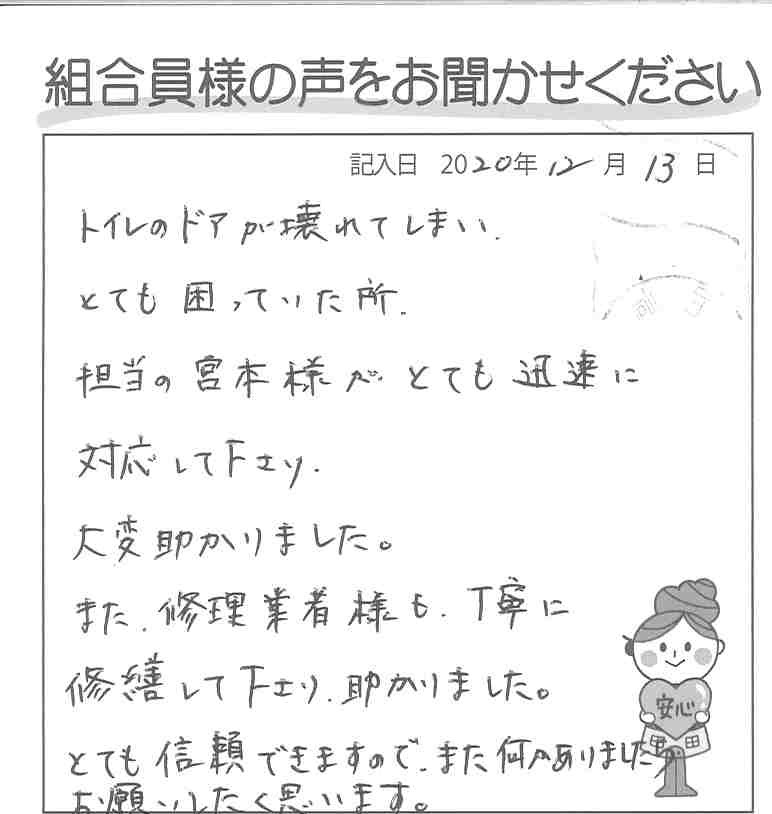 組合員様の声をお聞かせください
記入日 2020年 12月 13日
トイレのドアが壊れてしまい、
とても困っていた所、
担当の宮本様が、とても迅速に
対応して下さり、
大変助かりました。
また、修理業者様も、丁寧に
修繕して下さり、助かりました。
安心
とても信頼できますので、また何かありましたら
お願いしたく思います。